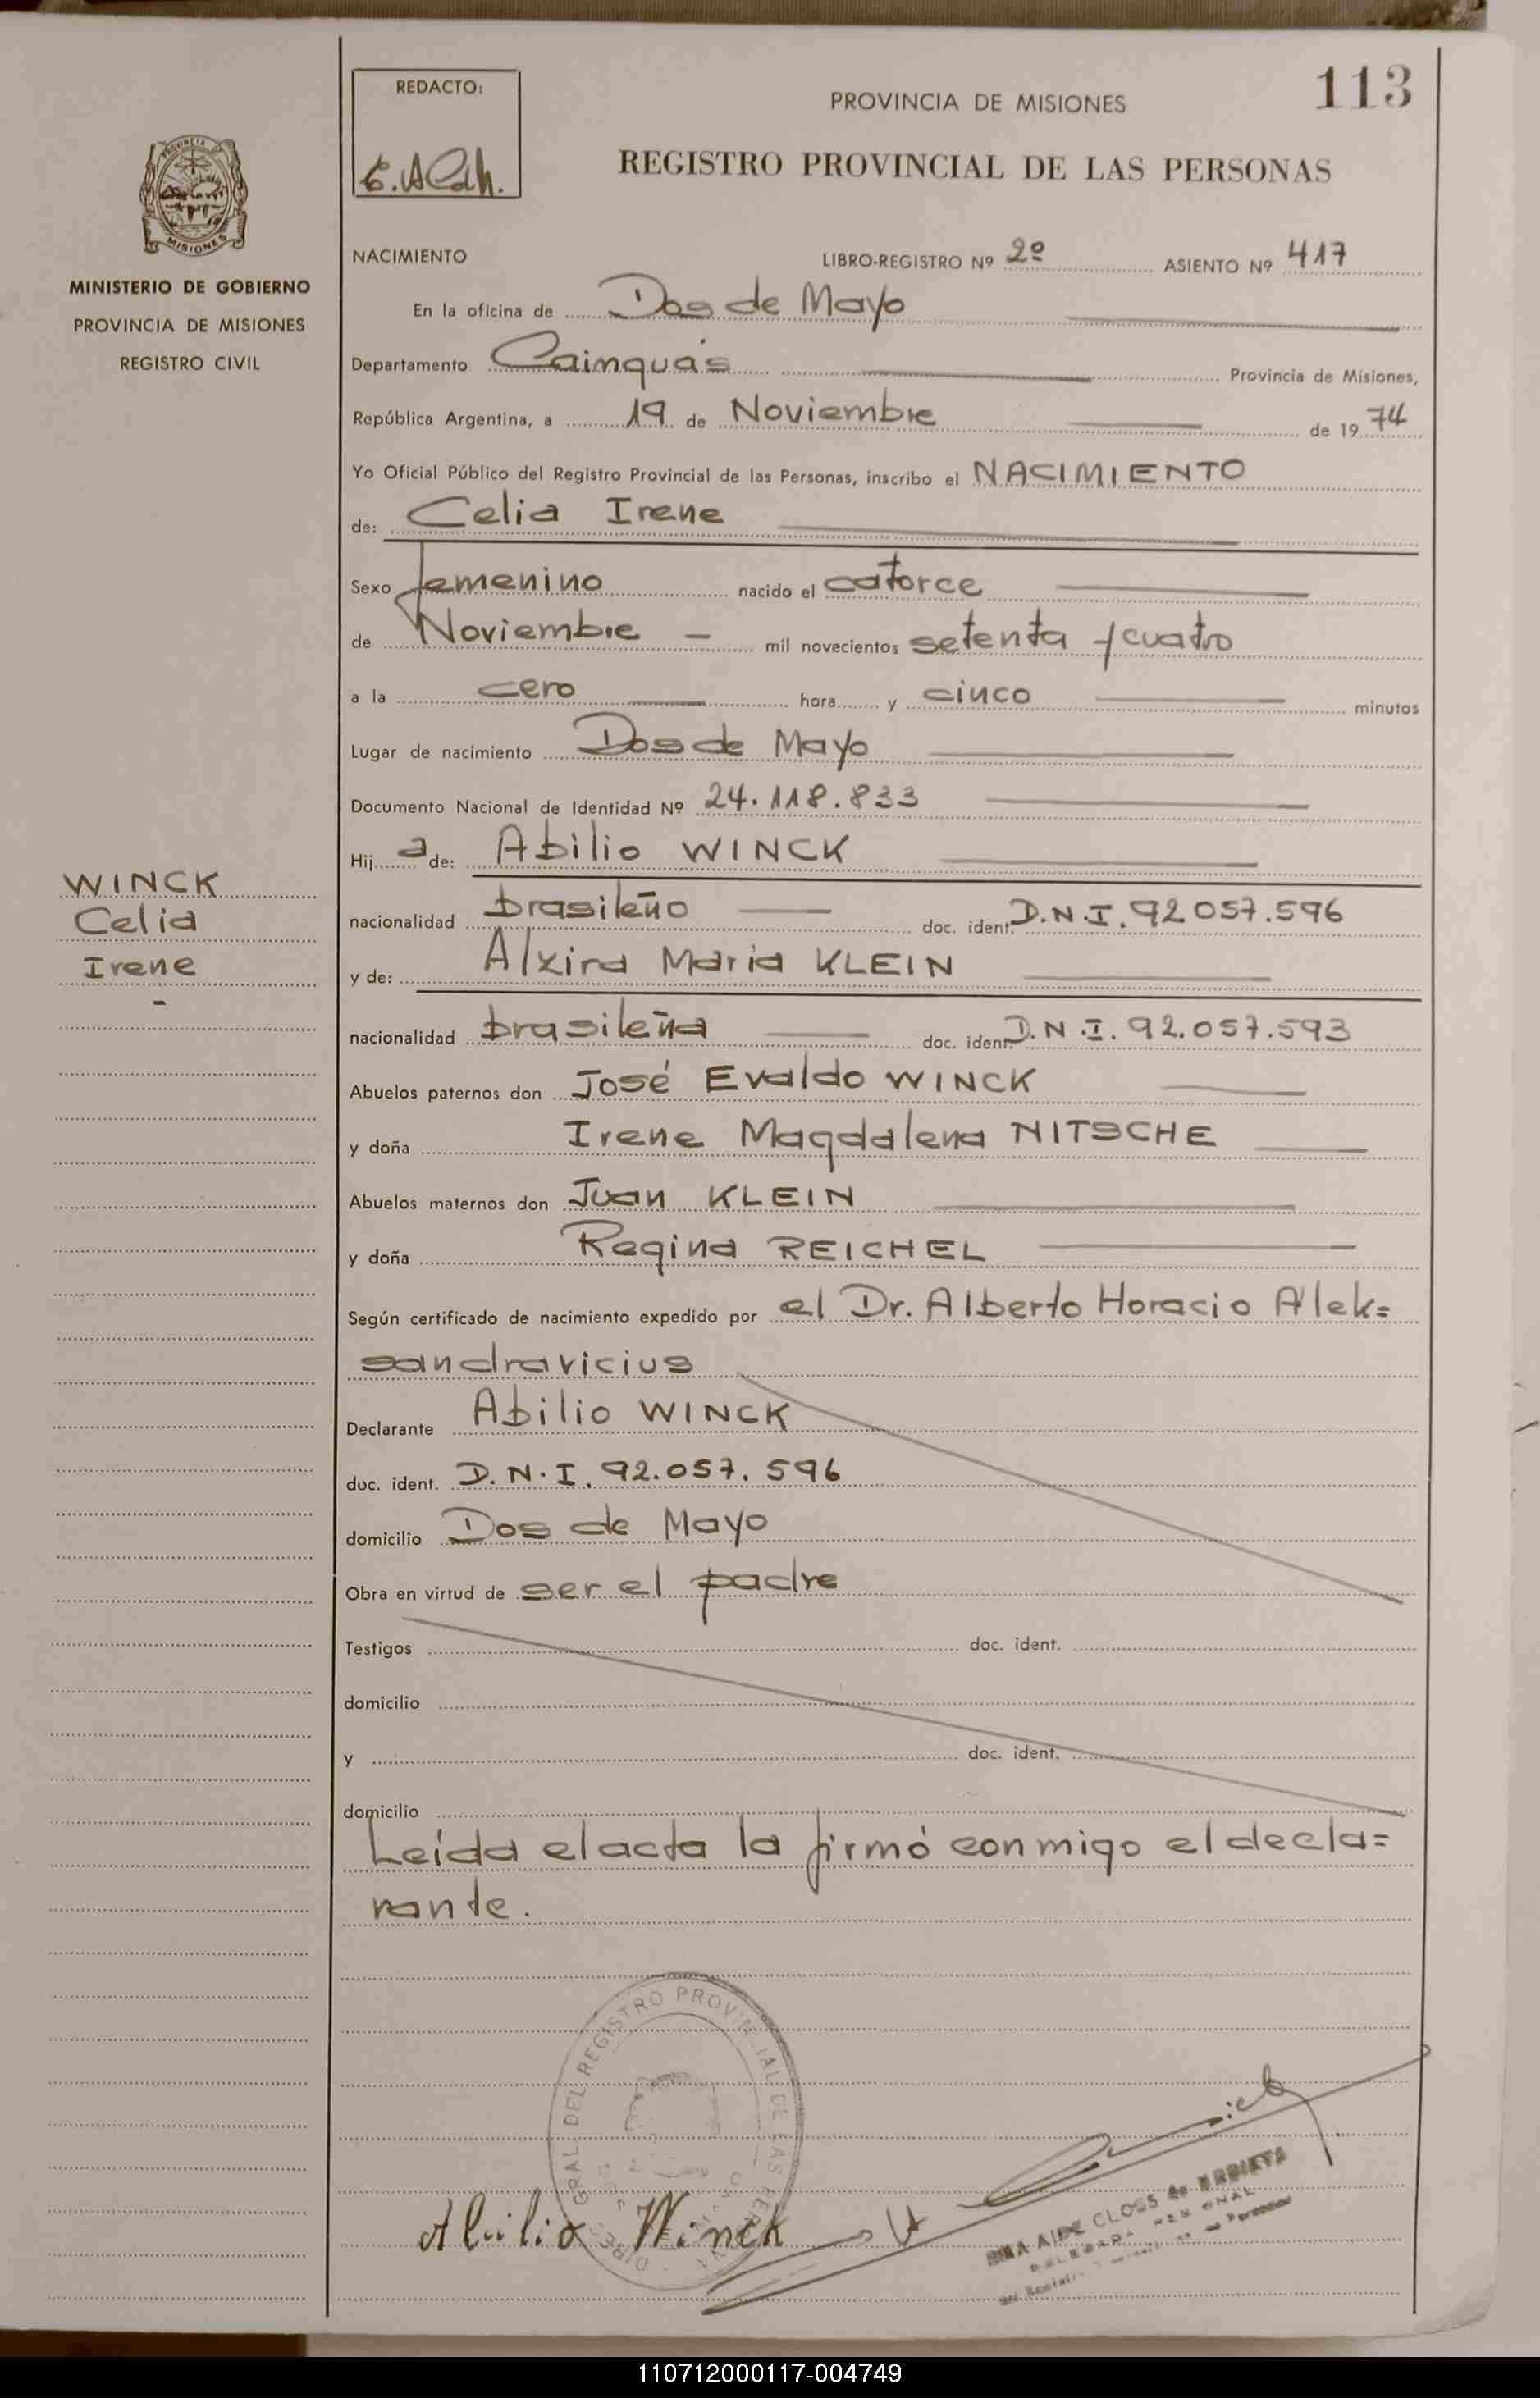 113
REDACTO:
PROVINCIA DE MISIONES
REGISTRO PROVINCIAL DE LAS PERSONAS
PROVINCIA
MISIONES
MINISTERIO DE GOBIERNO
PROVINCIA DE MISIONES
REGISTRO CIVIL
NACIMIENTO LIBRO-REGISTRO Nº 2º ASIENTO Nº 417
En la oficina de Dos de Mayo
Departamento Cainquás Provincia de Misiones,
República Argentina, a 19 de Noviembre de 19 74
Yo Oficial Público del Registro Provincial de las Personas, inscribo el NACIMIENTO
de: Celia Irene
Sexo femenino nacido el catorce
de Noviembre — mil novecientos setenta y cuatro
a la cero hora y cinco minutos
Lugar de nacimiento Dos de Mayo
Documento Nacional de Identidad Nº 24.118.833
Hij a de: Abilio WINCK
WINCK
Celia
Irene
-
nacionalidad brasileño doc. ident. D.N.I. 92.057.596
y de: Alxira Maria KLEIN
nacionalidad brasileña doc. ident. D.N.I. 92.057.593
Abuelos paternos don José Evaldo WINCK
y doña Irene Magdalena NITSCHE
Abuelos maternos don Juan KLEIN
y doña Regina REICHEL
Según certificado de nacimiento expedido por el Dr. Alberto Horacio Alek=
sandravicius
Declarante Abilio WINCK
doc. ident. D.N.I. 92.057.596
domicilio Dos de Mayo
Obra en virtud de ser el padre
Testigos doc. ident.
domicilio
y doc. ident.
domicilio
Leída el acta la firmó conmigo el decla=
rante.
DIREC GRAL. DEL REGISTRO PROVINCIAL DE LAS PERSONAS
Abilio Winck
AIDE CLOSS de URRIETA
110712000117-004749